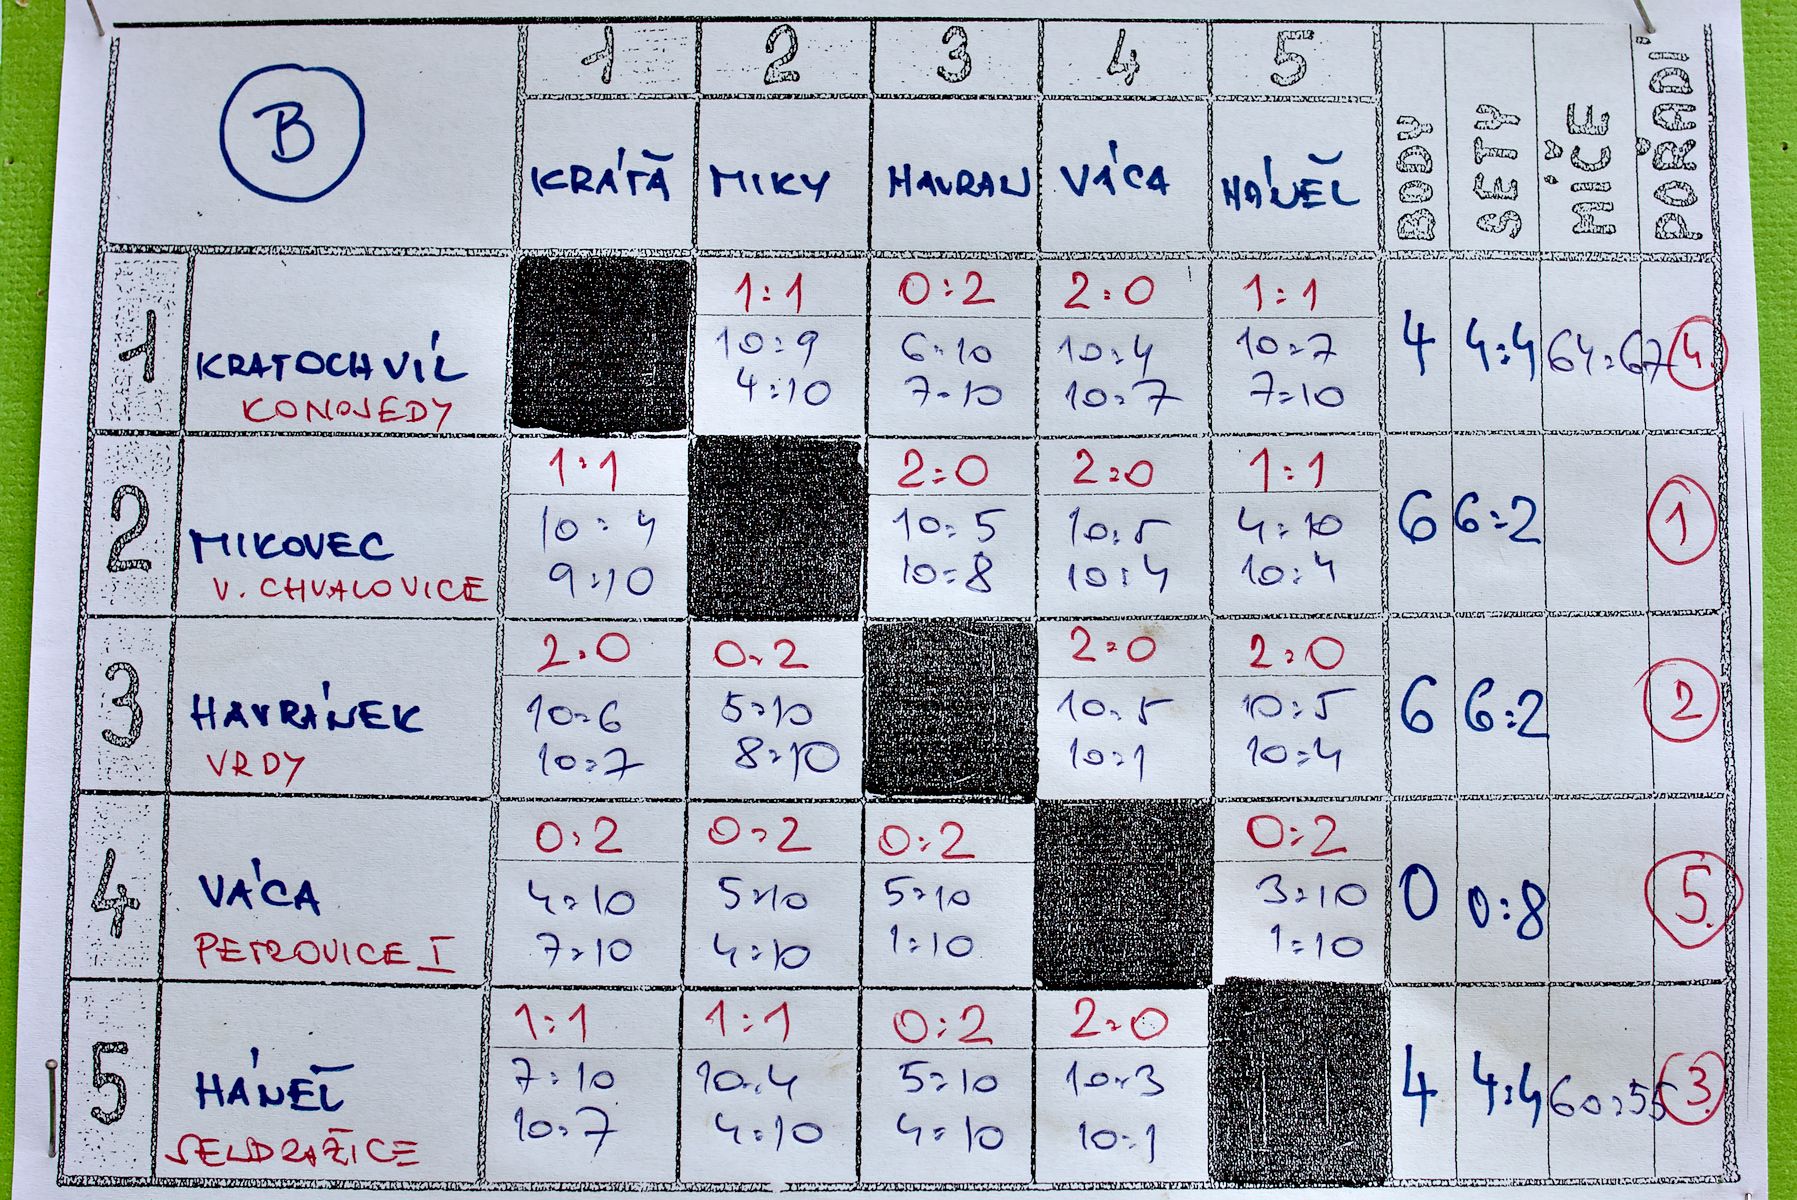 B
1 2 3 4 5
KRÁŤA MIKY HAVRAN VÁCA HÁNEL BODY SETY MÍČE POŘADÍ
1:1 0:2 2:0 1:1
1 KRATOCHVÍL 10:9 6:10 10:4 10:7 4 4:4 64:67 4.
KONOJEDY 4:10 7:10 10:7 7:10
1:1 2:0 2:0 1:1
2 MIKOVEC 10:4 10:5 10:5 4:10 6 6:2 1
V. CHVALOVICE 9:10 10:8 10:4 10:4
2:0 0:2 2:0 2:0
3 HAVRÁNEK 10:6 5:10 10:5 10:5 6 6:2 2
VRDY 10:7 8:10 10:1 10:4
0:2 0:2 0:2 0:2
4 VÁCA 4:10 5:10 5:10 3:10 0 0:8 5.
PETROVICE I 7:10 4:10 1:10 1:10
1:1 1:1 0:2 2:0
5 HÁNEL 7:10 10:4 5:10 10:3 4 4:4 60:55 3.
SELDRAŽICE 10:7 4:10 4:10 10:1